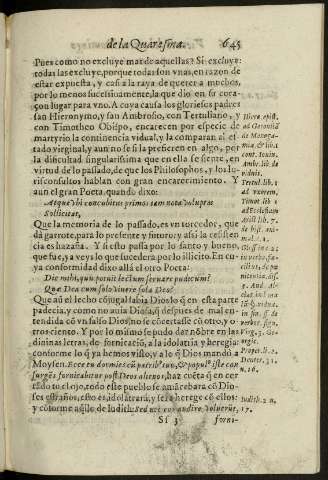 de la Quaresma. 645
Pues como no excluye mar de aquellas? Si excluye:
todas las excluye, porque todas son vnas, en razon de
estar expuesta, y casi a la raya de querer a muchos,
por lo menos sucessiuamente, la que dio en su cora-
çon lugar para vno. A cuya causa los gloriosos padres
san Hieronymo, y san Ambrosio, con Tertuliano, y
con Timotheo Obispo, encarecen por especie de
martyrio la continencia vidual, y la comparan al es-
tado virginal, y aun no se si la prefieren en algo, por
la dificultad singularissima que en ella se siente, en
virtud de lo passado, de que los Philosophos, y los Iu-
risconsultos hablan con gran encarecimiento. Y
aun el gran Poeta, quando dixo:
Atque vbi concubitus primos iam nota voluptas
Sollicitat,
Que la memoria de lo passado, es vn torcedor, que
da garrote, para lo presente y futuro: y assi la resisten
cia es hazaña. Y si esto passa por lo santo y bueno,
que fue, ya veys lo que sucedera por lo illicito. En cu-
ya conformidad dixo allá el otro Poeta:
Die mihi, quis potuit lectum seruare pudicum?
Quæ Dea cum solo viuere sola Deo?
padecia, y como no auia Diosa, q̃ despues de mal en-
tendida cõ vn falso Dios, no se cõcertasse cõ otro, y o-
tros ciento. Y por lo mismo se pudo dar nõbre en las
diuinas letras, de fornicaciõ, a la idolatria y heregia:
conforme lo q̃ ya hemos visto, y a lo q̃ Dios mandó a
Moysen. Ecce tu dormies cũ patribꝰ tuis, & populꝰ iste con
surgẽs fornicabitur post Deos alienos, haz cuẽta q̃ en cer
rado tu el ojo, todo este pueblo se amãcebara cõ Dio-
ses estraños, esto es, idolatrará, y sera herege cõ ellos:
Sf 3 forni-
Hiero. epist.
ad Geronciã
de Monoga-
mia, & lib. 1
cont. Iouin.
Ambr. lib. de
viduis.
Tertul. lib. 1
ad vxorem.
Timot. lib. 1
Arist lib. 7.
de hist. ani-
mal. c. 1.
Virg. 3. Ge-
orgic.
Propert. li. 2.
Deuter. 31.
n. 16.
Iudith. 2. n.
17.